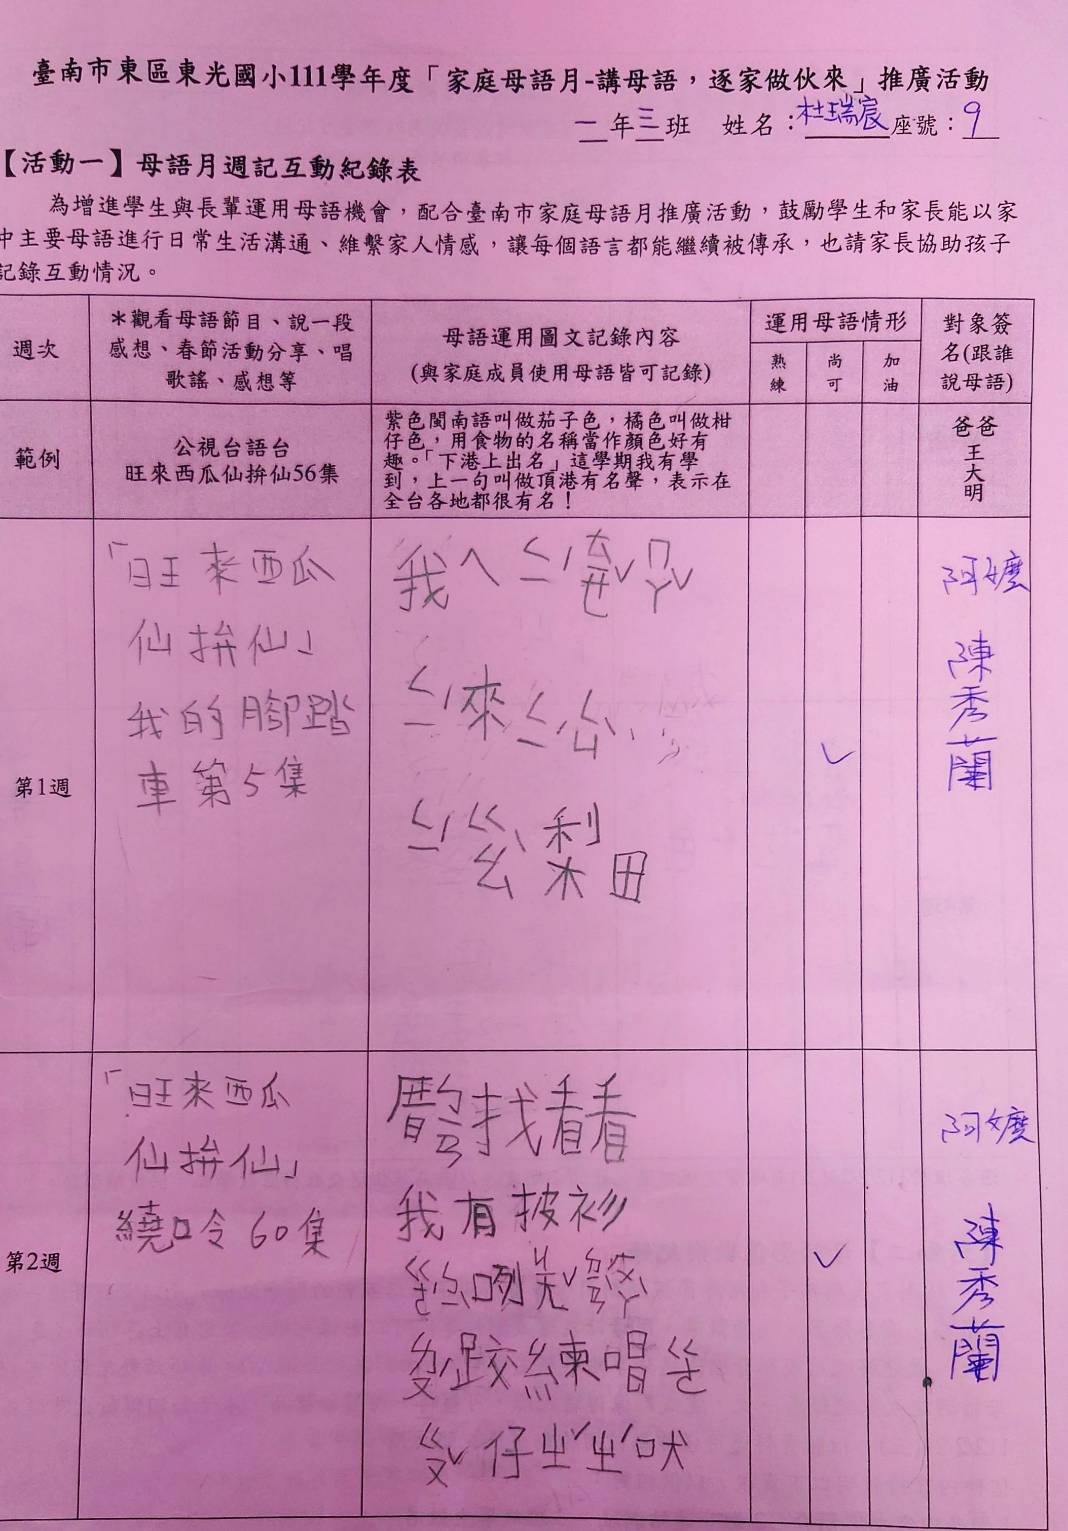 臺南市東區東光國小111學年度「家庭母語月-講母語，逐家做伙來」推廣活動
一年三班 姓名：杜瑞宸座號：9
【活動一】母語月週記互動紀錄表
為增進學生與長輩運用母語機會，配合臺南市家庭母語月推廣活動，鼓勵學生和家長能以家
中主要母語進行日常生活溝通、維繫家人情感，讓每個語言都能繼續被傳承，也請家長協助孩子
記錄互動情況。
週次
＊觀看母語節目、說一段
感想、春節活動分享、唱
歌謠、感想等
母語運用圖文記錄內容
(與家庭成員使用母語皆可記錄)
運用母語情形
熟練
尚可
加油
對象簽
名(跟誰
說母語)
範例
公視台語台
旺來西瓜仙拚仙56集
紫色閩南語叫做茄子色，橘色叫做柑
仔色，用食物的名稱當作顏色好有
趣。「下港上出名」這學期我有學
到，上一句叫做頂港有名聲，表示在
全台各地都很有名！
爸爸
王
大
明
第1週
「旺來西瓜
仙拚仙」
我的腳踏
車第5集
我
來
田
ˇ
阿嬤
陳
秀
蘭
第2週
「旺來西瓜
仙拚仙」
繞口令60集
找看看
我有披衫
咧
跤練唱
仔 吠
ˇ
阿嬤
陳
秀
蘭